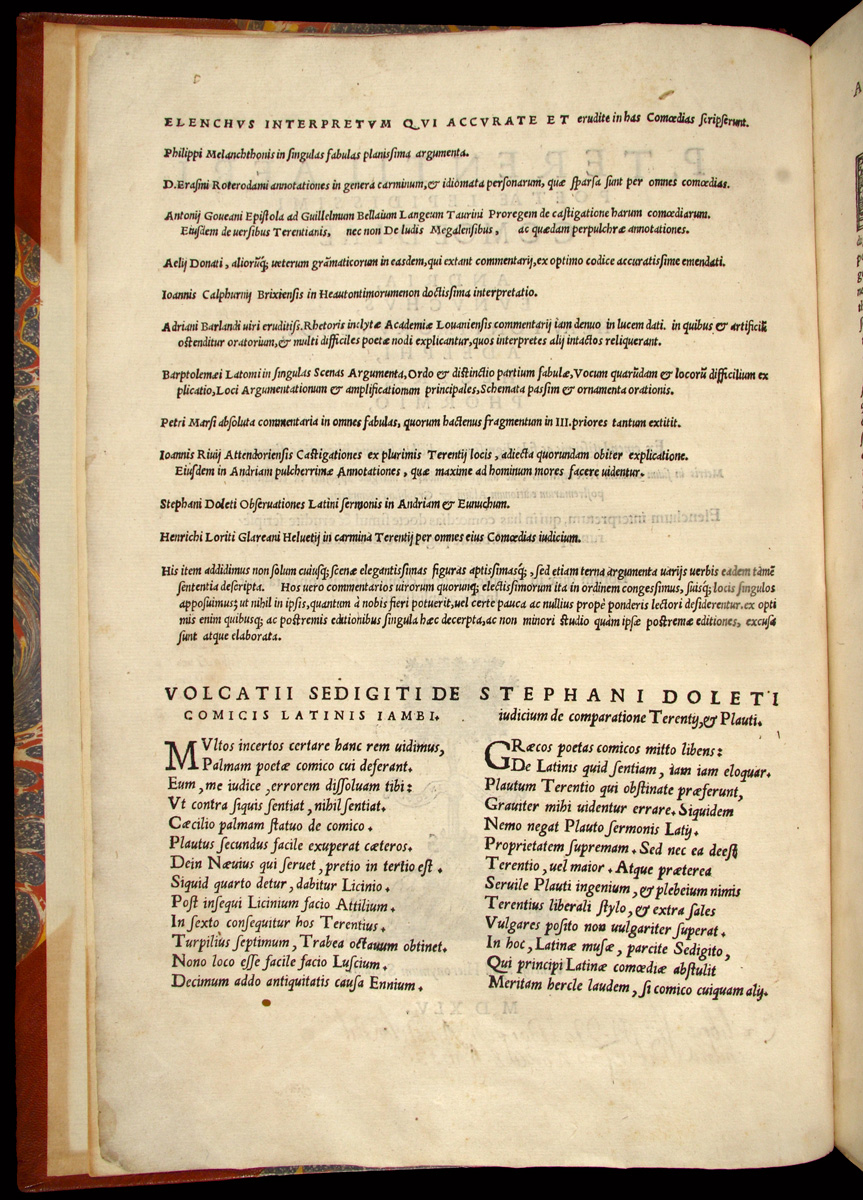 ELENCHVS INTERPRETVM QVI ACCVRATE ET erudite in has Comœdias ſcripſerunt.
Philippi Melanchthonis in ſingulas fabulas planiſsima argumenta.
D. Eraſmi Roterodami annotationes in genera carminum, & idiomata perſonarum, quæ ſparſa ſunt per omnes comœdias.
Antonij Goueani Epiſtola ad Guillelmum Bellaium Langeum Taurini Proregem de caſtigatione harum comœdiarum.
Eiuſdem de uerſibus Terentianis, nec non De ludis Megalenſibus, ac quædam perpulchræ annotationes.
Aelij Donati, aliorūq; ueterum grāmaticorum in eaſdem, qui extant commentarij, ex optimo codice accuratiſsime emendati.
Ioannis Calphurnij Brixienſis in Heautontimorumenon doctiſsima interpretatio.
Adriani Barlandi uiri eruditiſs. Rhetoris inclytæ Academiæ Louanienſis commentarij iam denuo in lucem dati. in quibus & artificiū
oſtenditur oratorium, & multi difficiles poetæ nodi explicantur, quos interpretes alij intactos reliquerant.
Barptolemæi Latomi in ſingulas Scenas Argumenta, Ordo & diſtinctio partium fabulæ, Vocum quarūdam & locorū difficilium ex
plicatio, Loci Argumentationum & amplificationum principales, Schemata paſsim & ornamenta orationis.
Petri Marſi abſoluta commentaria in omnes fabulas, quorum hactenus fragmentum in III. priores tantum extitit.
Ioannis Riuij Attendorienſis Caſtigationes ex plurimis Terentij locis, adiecta quorundam obiter explicatione.
Eiuſdem in Andriam pulcherrimæ Annotationes, quæ maxime ad hominum mores facere uidentur.
Stephani Doleti Obſeruationes Latini ſermonis in Andriam & Eunuchum.
Henrichi Loriti Glareani Heluetij in carmina Terentij per omnes eius Comœdias iudicium.
His item addidimus non ſolum cuiusq; ſcenæ elegantiſsimas figuras aptiſsimasq́;, ſed etiam terna argumenta uarijs uerbis eadem tamē
ſententia deſcripta. Hos uero commentarios uirorum quorunq; electiſsimorum ita in ordinem congeſsimus, ſuisq́; locis ſingulos
appoſuimus; ut nihil in ipſis, quantum à nobis fieri potuerit, uel certe pauca ac nullius propè ponderis lectori deſiderentur. ex opti
mis enim quibusq; ac poſtremis editionibus ſingula hæc decerpta, ac non minori ſtudio quàm ipſæ poſtremæ editiones, excuſa
ſunt atque elaborata.
VOLCATII SEDIGITI DE
COMICIS LATINIS IAMBI.
MVltos incertos certare hanc rem uidimus,
Palmam poetæ comico cui deferant.
Eum, me iudice, errorem diſſoluam tibi:
Vt contra ſiquis ſentiat, nihil ſentiat.
Cæcilio palmam ſtatuo de comico.
Plautus ſecundus facile exuperat cæteros.
Dein Næuius qui ſeruet, pretio in tertio eſt.
Siquid quarto detur, dabitur Licinio.
Poſt inſequi Licinium facio Attilium.
In ſexto conſequitur hos Terentius.
Turpilius ſeptimum, Trabea octauum obtinet.
Nono loco eſſe facile facio Luſcium.
Decimum addo antiquitatis cauſa Ennium.
STEPHANI DOLETI
iudicium de comparatione Terentij, & Plauti.
GRæcos poetas comicos mitto libens:
De Latinis quid ſentiam, iam iam eloquar.
Plautum Terentio qui obſtinate præferunt,
Grauiter mihi uidentur errare. Siquidem
Nemo negat Plauto ſermonis Latij
Proprietatem ſupremam. Sed nec ea deeſt
Terentio, uel maior. Atque præterea
Seruile Plauti ingenium, & plebeium nimis
Terentius liberali ſtylo, & extra ſales
Vulgares poſito non uulgariter ſuperat.
In hoc, Latinæ muſæ, parcite Sedigito,
Qui principi Latinæ comœdiæ abſtulit
Meritam hercle laudem, ſi comico cuiquam alij.